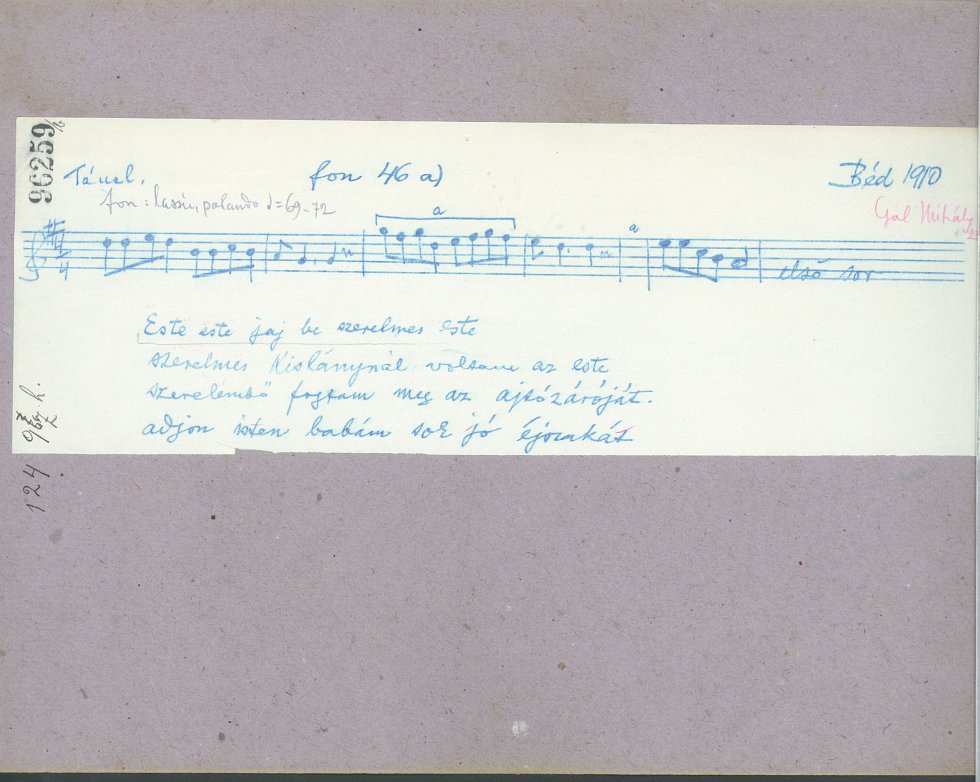 96259/b
Táncl. fon 46 a) Béd 1910
fon: Lassu, parlando = 69-72 Gál Mihály
a
4
a
első sor
Este este jaj be szerelmes este
szerelmes Kislánynál voltam az este
szerelembő fogtam meg az ajtózáróját.
adjon isten babám sok jó éjcakát
124 h.